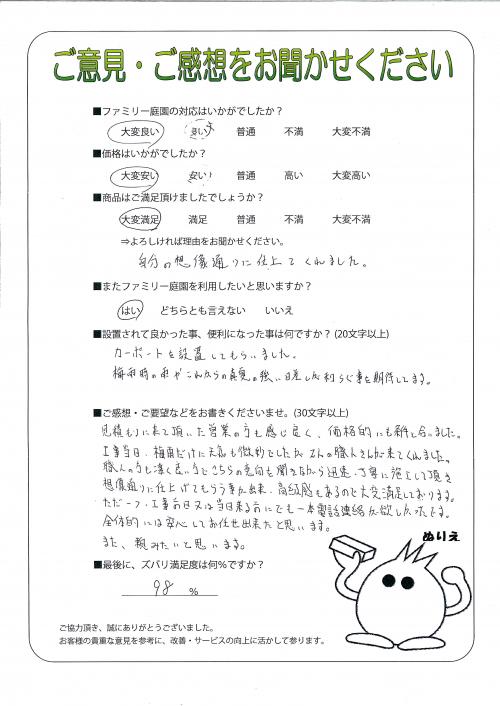 ご意見・ご感想をお聞かせください
■ファミリー庭園の対応はいかがでしたか？
大変良い 良い 普通 不満 大変不満
■価格はいかがでしたか？
大変安い 安い 普通 高い 大変高い
■商品はご満足頂けましたでしょうか？
大変満足 満足 普通 不満 大変不満
⇒よろしければ理由をお聞かせください。
自分の想像通りに仕上てくれました。
■またファミリー庭園を利用したいと思いますか？
はい どちらとも言えない いいえ
■設置されて良かった事、便利になった事は何ですか？(20文字以上)
カーポートを設置してもらいました。
梅雨時の雨やこれからの真夏の強い日差しが和らぐ事を期待してます。
■ご感想・ご要望などをお書きくださいませ。(30文字以上)
見積もりに来て頂いた営業の方も感じ良く、価格的にも
工事当日、梅雨だけに天気も微妙でしたが の職人さんが来てくれました。
職人の方も凄く良い方でこちらの意向も聞きながら迅速、丁寧に施工して頂き
想像通りに仕上げてもらう事が出来、高級感もあるので大変満足しております。
ただ一つ、工事前日又は当日来る前にでも一本電話連絡が欲しかったです。
全体的には安心してお任せ出来たと思います。
また、頼みたいと思います。
ぬりえ
■最後に、ズバリ満足度は何％ですか？
98 ％
ご協力頂き、誠にありがとうございました。
お客様の貴重な意見を参考に、改善・サービスの向上に活かして参ります。